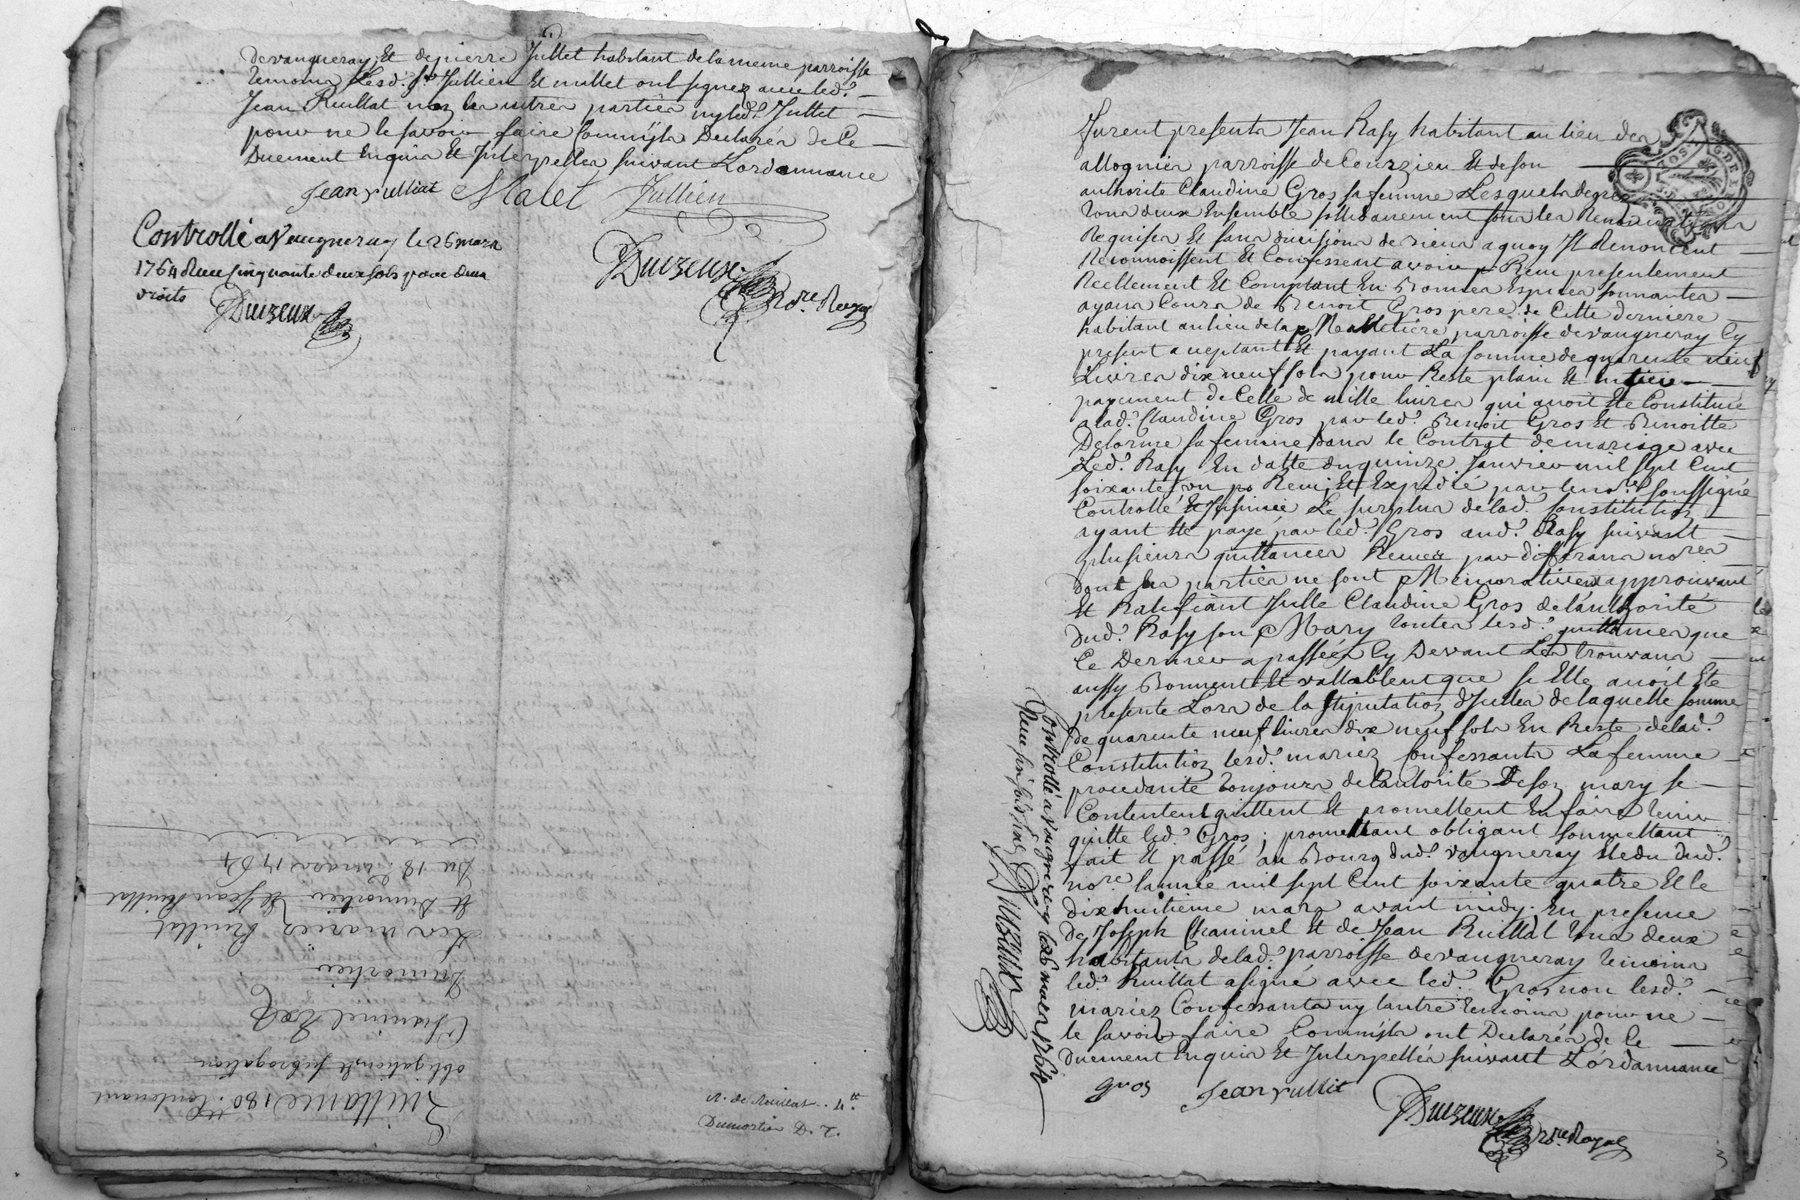 devaugneray, Et de pierre Jullet habitant de la meme parroisse
temoins Lesd. Srs Jullien Et mallet ont signez avec led.
Jean Ruillat non les autres parties ny led. Jullet
pour ne le savoir faire Comme ils ont Declarés de Ce
Duement Enquis Et Interpellés suivant Lordonnance
Jean rulliat Malet Jullien
Controllé a Vaugneray le 26 mars
1764 Receu cinquante deux sols pour deux
droits
Duizeux
Duizeux
No.re Royal
Du 18e mars 1764
Et Dumortier Et Jean Ruillat
Les mariez Ruillat
Dumortier
Chaninel
obligation Et subrogation
Quittance 180 tt Contenant
R. de Ruillat .. 4 tt
Dumortier D. 7.
furent presents Jean Rasy habitant au lieu des
allognier parroisse de Courzieu Et de son
authorité Claudine Gros sa femme Lesquels de gré
tous deux Ensemble solidairement sous les Renonciations
Requises Et sans division de biens a quoy Ils Renoncent
Reconnoissent Et Confessent avoir Reçu presentement
Reellement Et Comptant En Bonnes Especes sonnantes
ayans Cours de Benoit Gros pere de Cette derniere
habitant au lieu de la Malletiere parroisse de vaugneray Cy
present acceptant Et payant La somme de quarente neuf
Livres dix neuf sols pour Reste plain Et entier
payement de Celle de mille livres qui avoit Eté Constituée
a lad. Claudine Gros par led. Benoit Gros Et Benoitte
Delorme sa femme dans le Contrat de mariage avec
Led. Rasy En datte du quinze Janvier mil sept Cent
soixante un Receu Et Expedié par le no.re soussigné
Controllé Et Insinué Le surplus de lad. Constitution
ayant Eté payé par led. Gros aud. Rasy suivant
plusieurs quittances Receues par diferans no.res
dont les parties ne sont Memoratives approuvant
Et Ratifiant Icelle Claudine Gros de l'authorité
dud. Rasy son Mary toutes lesd. quittances que
Ce Dernier a passées Cy Devant Les trouvans
aussy Bonnent Et vallablent que si Elle avoit Eté
presente Lors de la stipulation d'Icelles de laquelle somme
de quarente neuf livres dix neuf sols En Reste de lad.
Constitution lesd. mariez Confessants La femme
procedante toujours de Lautorité De son mary se
Contentent quittent Et promettent En faire tenir
quitte led. Gros; promettant obligant soumettant
fait Et passé au Bourg dud. vaugneray Etude dud.
no.re lannée mil sept Cent soixante quatre Et le
dix huitieme mars avant midy. En presence
de Joseph Chaninel Et de Jean Ruillat tous deux
habitants de lad. parroisse devaugneray temoins
led. Ruillat a signé avec led. Gros non lesd.
mariez Confessants ny lautre temoins pour ne
le savoir faire Comme ils ont Declarés de Ce
Duement Enquis Et Interpellés suivant L'ordonnance
gros Jean rulliat
Duizeux no.re Royal
Controllé a vaugneray le 26 mars 1764
Receu six sols
Duizeux